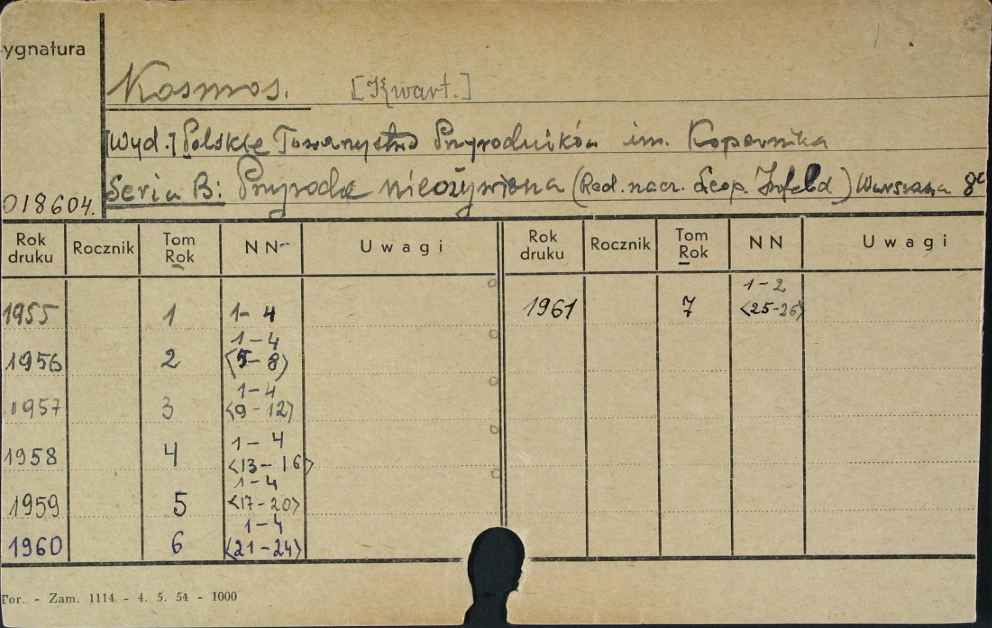 ygnatura
Kosmos. [Kwart.]
[Wyd.] Polskie Towarzystwo Przyrodników im. Kopernika
018604. Seria B: Przyroda nieożywiona (Red. nacz. Leop. Infeld) Warszawa 8°
Rok druku Rocznik Tom Rok NN Uwagi Rok druku Rocznik Tom Rok NN Uwagi
1955 1 1-4 1961 7 1-2 <25-26>
1956 2 1-4 <5-8>
1957 3 1-4 <9-12>
1958 4 1-4 <13-16>
1959 5 1-4 <17-20>
1960 6 1-4 <21-24>
Tor. - Zam. 1114 - 4. 5. 54 - 1000